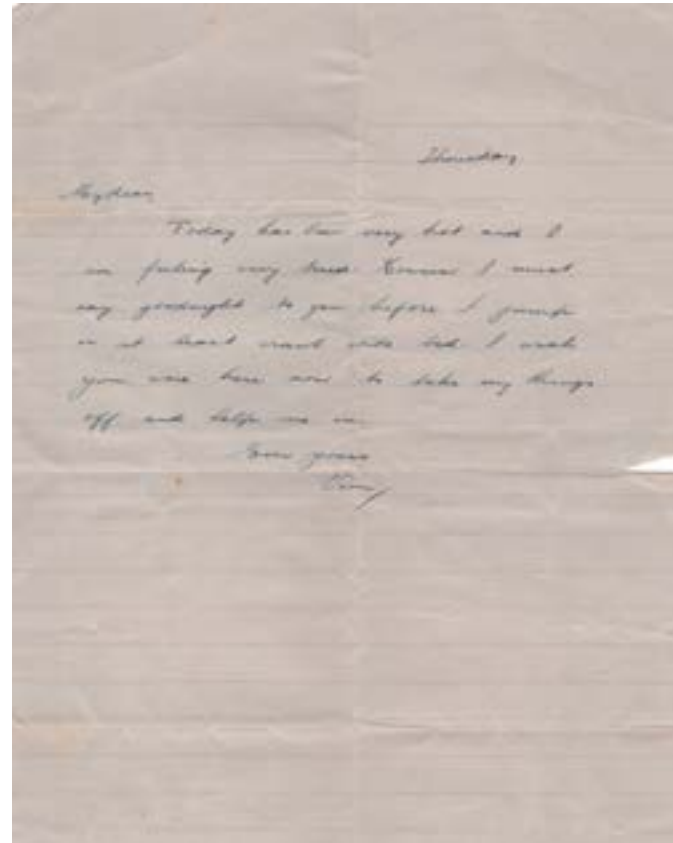 Thursday
My dear
Today has been very hot and I
am feeling very tired However I must
say goodnight to you before I jump
or at least crawl into bed I wish
you were here now to take my things
off and help me in
Ever yours